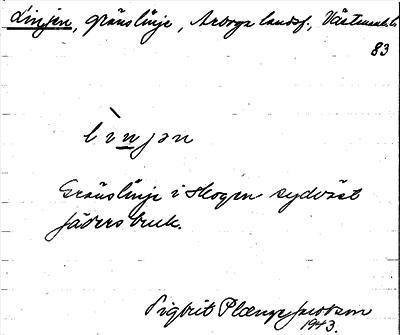 Linjen, gränslinje, Arboga landsf., Västmanl. l.
83
lìnjən
Gränslinje i skogen sydväst
Jäders bruk.
Sigbrit Plænge Jacobson
1943.